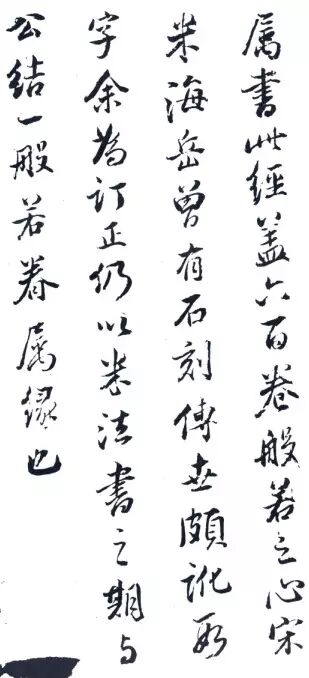 属書此經盖六百卷般若之心宋
米海岳曾有石刻傳世頗訛數
字余為訂正仍以米法書之期与
公結一般若眷属緣也